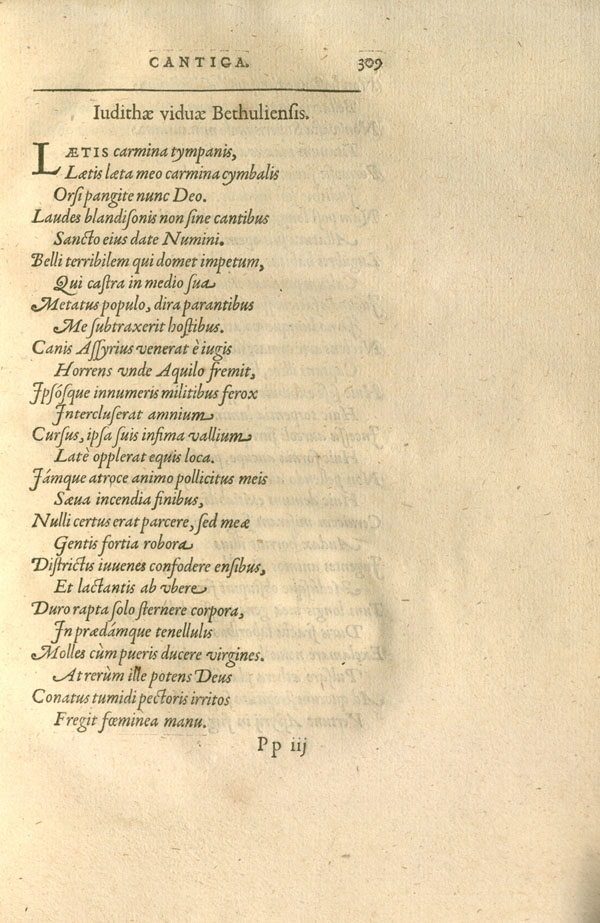 CANTIGA. 309
Iudithæ viduæ Bethulienſis.
LÆTIS carmina tympanis,
Lætis læta meo carmina cymbalis
Orſi pangite nunc Deo.
Laudes blandiſonis non ſine cantibus
Sancto eius date Numini.
Belli terribilem qui domet impetum,
Qui caſtra in medio ſua
Metatus populo, dira parantibus
Me ſubtraxerit hoſtibus.
Canis Aſſyrius venerat è iugis
Horrens vnde Aquilo fremit,
Ipſóſque innumeris militibus ferox
Intercluſerat amnium
Curſus, ipſa ſuis infima vallium
Latè opplerat equis loca.
Jámque atroce animo pollicitus meis
Sæua incendia finibus,
Nulli certus erat parcere, ſed meæ
Gentis fortia robora
Diſtrictis iuuenes confodere enſibus,
Et lactantis ab vbere
Duro rapta ſolo ſternere corpora,
In prædámque tenellulis
Molles cùm pueris ducere virgines.
At rerùm ille potens Deus
Conatus tumidi pectoris irritos
Fregit fœminea manu.
Pp iij